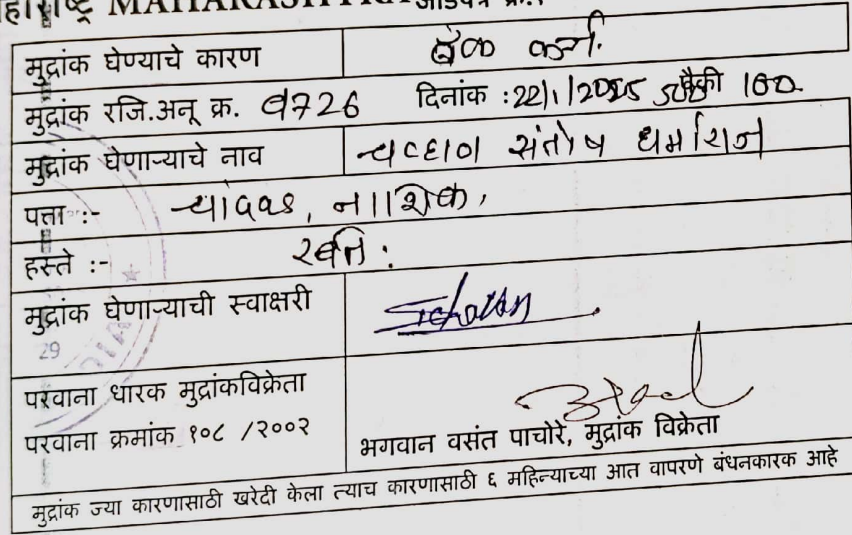 महाराष्ट्र MAHARASHTRA
मुद्रांक घेण्याचे कारण बँक कर्ज.
मुद्रांक रजि.अनू क्र. 1726 दिनांक :22/1/2025 500 पैकी 100
मुद्रांक घेणाऱ्याचे नाव चव्हाण संतोष धर्मराज
पत्ता :- चांदवड, नाशिक,
हस्ते :- स्वतः
मुद्रांक घेणाऱ्याची स्वाक्षरी
29
परवाना धारक मुद्रांकविक्रेता
परवाना क्रमांक १०८ /२००२
भगवान वसंत पाचोरे, मुद्रांक विक्रेता
मुद्रांक ज्या कारणासाठी खरेदी केला त्याच कारणासाठी ६ महिन्याच्या आत वापरणे बंधनकारक आहे